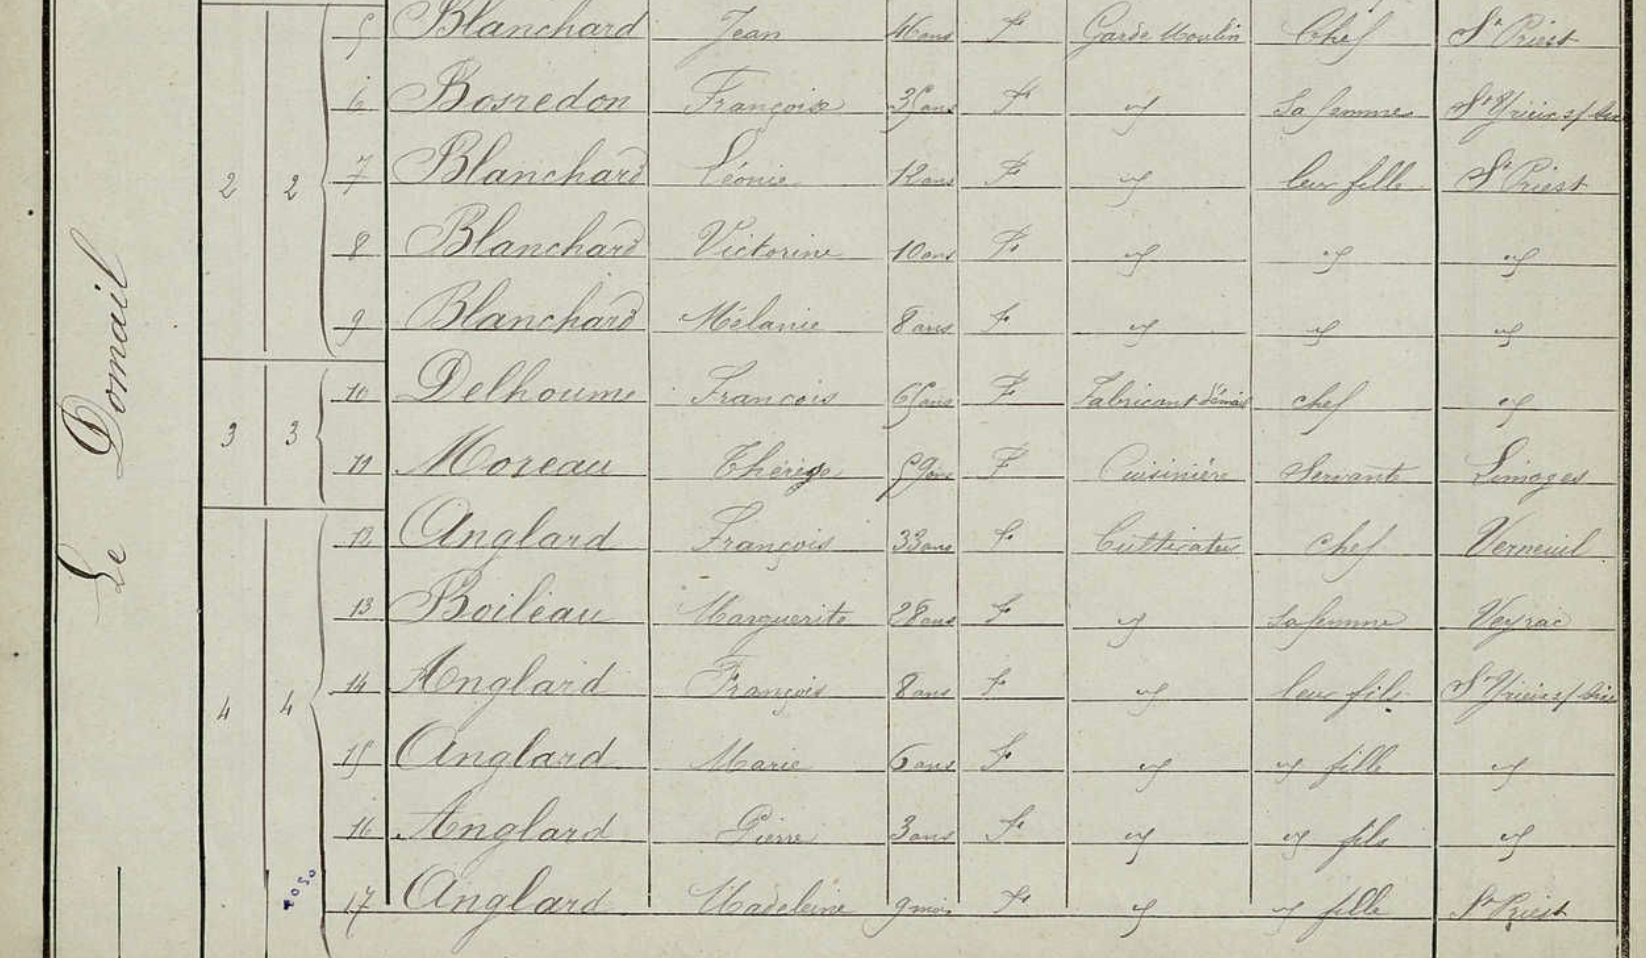 Le Domail
2 2
5 Blanchard Jean 46 ans F Garde Moulin Chef St Priest
6 Bosredon Françoise 35 ans F " Sa femme St Yrieix s/ Aixe
7 Blanchard Léonie 12 ans F " leur fille St Priest
8 Blanchard Victorine 10 ans F " " "
9 Blanchard Mélanie 8 ans F " " "
3 3
10 Delhoume François 65 ans F Fabricant d'émail chef "
11 Moreau Thérèse 59 ans F Cuisinière Servante Limoges
4 4
12 Anglard François 33 ans F Cultivateur chef Verneuil
13 Boileau Marguerite 28 ans F " Sa femme Veyrac
14 Anglard François 8 ans F " leur fils St Yrieix s/ Aixe
15 Anglard Marie 6 ans F " " fille "
16 Anglard Pierre 3 ans F " " fils "
17 Anglard Madeleine 9 mois F " " fille St Priest